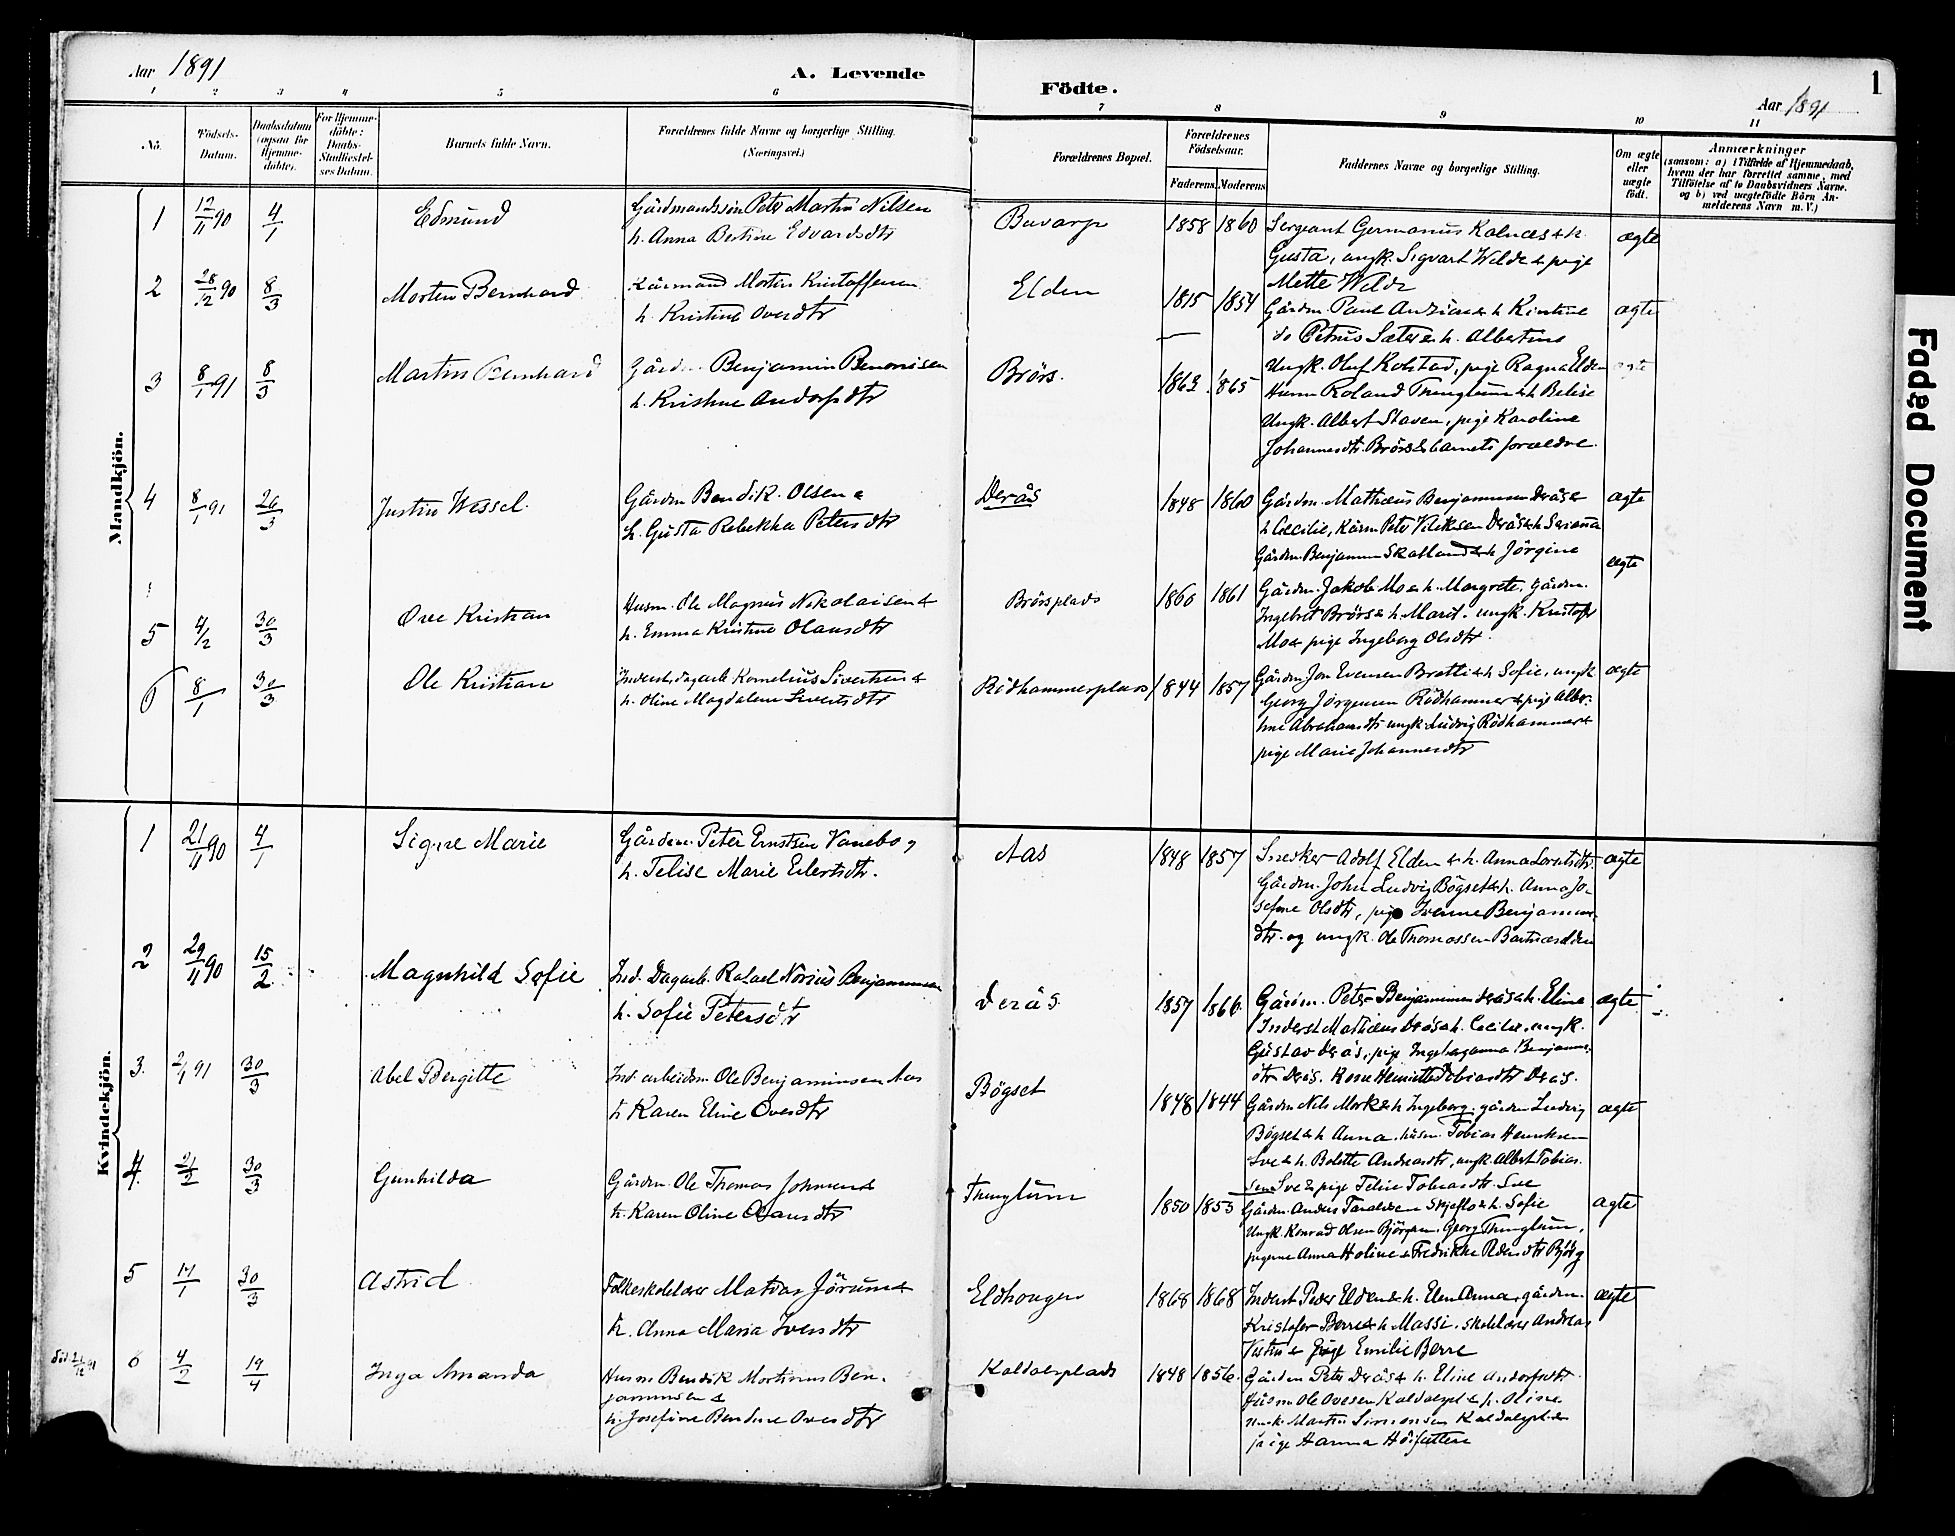 Aar 1891
A. Levende
Födte.
Aar 1891
1
1 2 3 4 5 6 7 8 9 10 11
No.
Födsels-Datum.
Daabsdatum (ogsaa for Hjemme-döbte).
For Hjemme-döbte: Daabs-Stadfæstel-ses Datum.
Barnets fulde Navn.
Forældrenes fulde Navne og borgerlige Stilling.
(Næringsvei.)
Forældrenes Bopæl.
Forældrenes Födselsaar.
Faderens. Moderens.
Faddernes Navne og borgerlige Stilling.
Om ægte eller uægte födt.
Anmærkninger
(saasom: a) i Tilfælde af Hjemmedaab, hvem der har forrettet samme, med Tilföielse af to Daabsvidners Navne. og b) ved uægtefödte Börn An-melderens Navn m. V.)
Mandkjön.
1 12/11 90 4/1 Edmund
Gårdmandssön Peter Martin Nilsen
h. Anna Bertine Edvardsdtr
Buvarp 1858 1860
Sergeant Germanus Kalnes & h.
Gusta, ungk. Sigvart Welde & pige
Mette Welde
ægte
2 28/12 90 8/3 Morten Bernhard
Kårmand Morten Kristoffersen
h. Kristine Overdtr
Elden 1815 1854
Gårdm. Paul Anzian & h Kirstine
do Petrus Sæter & h. Albertine
ungk. Oluf Kolstad, pige Ragna Elden
ægte
3 8/1 91 8/3 Martin Bernhard
Gårdm. Benjamin Benonisen
h. Kristine Andorsdtr
Brörs. 1863 1865
Husm Roland Thinglum & h Belise
Ungk. Albert Staven, pige Karoline
Johannesdtr. Brörs & barnets forældre.
ægte
4 8/1 91 26/3 Justin Wessel.
Gårdm Bendik Olsen &
h. Gusta Rebekka Petersdtr
Derås 1848 1860
Gårdm. Mathæus Benjaminsen Derås &
h Cecilie, Kårm Peter Eriksen Derås & h Serianna
Gårdm. Benjamin Skatland & h Jörgine
ægte
5 4/2 30/3 Ove Kristian
Husm. Ole Magnus Nikolaisen &
h. Emma Kristine Olausdtr
Brörsplads 1860 1861
Gårdm. Jakob Mo & h. Margrete. Gårdm.
Ingebret Brörs & h. Marit. ungk. Kristofer
Mo & pige Ingeborg Olsdtr.
ægte
6 8/1 30/3 Ole Kristian
Inderst, dagarb. Kornelius Sivertsen &
h. Oline Magdalena Sivertsdtr
Rödhammerplads 1844 1857
Gårdm Jon Evensen Bratli & h Sofie, ungk
Georg Jörgensen Rödhammer & pige Alber-
tine Abrahamsdtr. ungk. Ludvig Rödhammer &
pige Marie Johannesdtr
ægte
Kvindekjön.
1 21/11 90 4/1 Signe Marie
Gårdm. Peter Ernstsen Vanebo,
h. Telise Marie Eilertsdtr.
Aas 1848 1857
Snedker Adolf Elden & h. Anna Lorntsdtr.
Gårdm. John Ludvig Bögset & h. Anna Jo-
sefine Olsdtr, pige Ivenne Benjamins-
dtr. og ungk. Ole Thomassen
ægte
2 29/11 90 15/2 Magnhild Sofie
Ind. Dagarb. Rafael Norius Benjaminsen
h. Sofie Petersdtr
Derås 1857 1866
Gårdm. Peter Benjaminsen Derås & h. Eline
Inderst Mathæus Derås & h. Cecilie, ungk.
Gustav Derås, pige Ingeborganna Benjamins-
dtr Derås. Kone Henriette Tobiasdtr Derås.
ægte
3. 2/1 91 30/3 Abel Bergitte
Ind. arbeidsm. Ole Benjaminsen Aas
h Karen Eline Oversdtr
Bögset 1848 1844
Gårdm Nils Mork & h Ingeborg. gårdm Ludvig
Bögset & h Anna, husm. Tobias Henriksen
Sve & h. Bolette Andreasdtr, ungk. Albert Tobias-
sen Sve & pige Feline Tobiasdtr Sve
ægte
4. 2/2 30/3 Gunhilda
Gårdm. Ole Thomas Johnsen &
h. Karen Oline Olausdtr
Thinglum 1850 1855
Gårdm Anders Taraldsen Skjeflo & h. Sofie
Ungk. Konrad Olsen Björgen, Georg Thinglum,
pigerne Anna Holine & Fredrikke Pedersdtr Björg
ægte
5 14/1 30/3 Astrid
Folkeskolelærer Matias Jörum &
h. Anna Maria Iversdtr
Eldhougen 1868 1868
Inderst Peder Elden & h. Elen Anna, gårdm.
Kristofer Berre & h Massi, skolelærer Andreas
Vestvi & pige Emilie Berre
ægte
död 21/12 91 6 4/2 19/4 Inga Amanda
Husm Bendik Martinus Ben-
jaminsen &
h. Josefine Bendine Oversdtr
Kaldalsplads 1848 1856.
Gårdm Peter Derås & h. Eline Andorsdtr
Husm Ole Ovesen Kaldalspl & h. Oline
ungk. Martin Simonsen Kaldalspl &
pige Hanna Höifutten
Faded Document